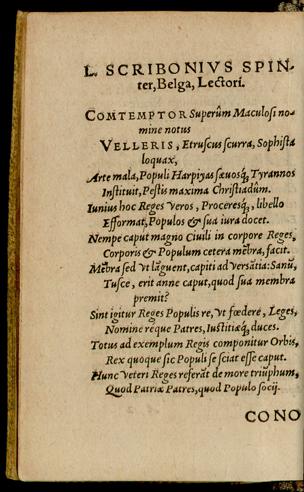 L. SCRIBONIVS SPIN-
ter, Belga, Lectori.
COMTEMPTOR Superûm Maculosi no-
mine notus
VELLERIS, Etruscus scurra, Sophista
loquax,
Arte mala, Populi Harpiyas sæuosq́, Tyrannos
Instituit, Pestis maxima Christiadûm.
Iunius hoc Reges Veros, Proceresq́, libello
Efformat, Populos & sua iura docet.
Nempe caput magno Ciuili in corpore Reges,
Corporis & Populum cetera mẽbra, facit.
Mẽbra sed vt lãguent, capiti aduersãtia: Sanũ,
Tusce, erit anne caput, quod sua membra
premit?
Sint igitur Reges Populis re, vt fœdere, Leges,
Nomine réque Patres, Iustitiæq́, duces.
Totus ad exemplum Regis componitur Orbis,
Rex quoque sic Populi se sciat esse caput.
Hunc Veteri Reges referãt de more triũphum,
Quod Patriæ Patres, quod Populo socij.
CONO